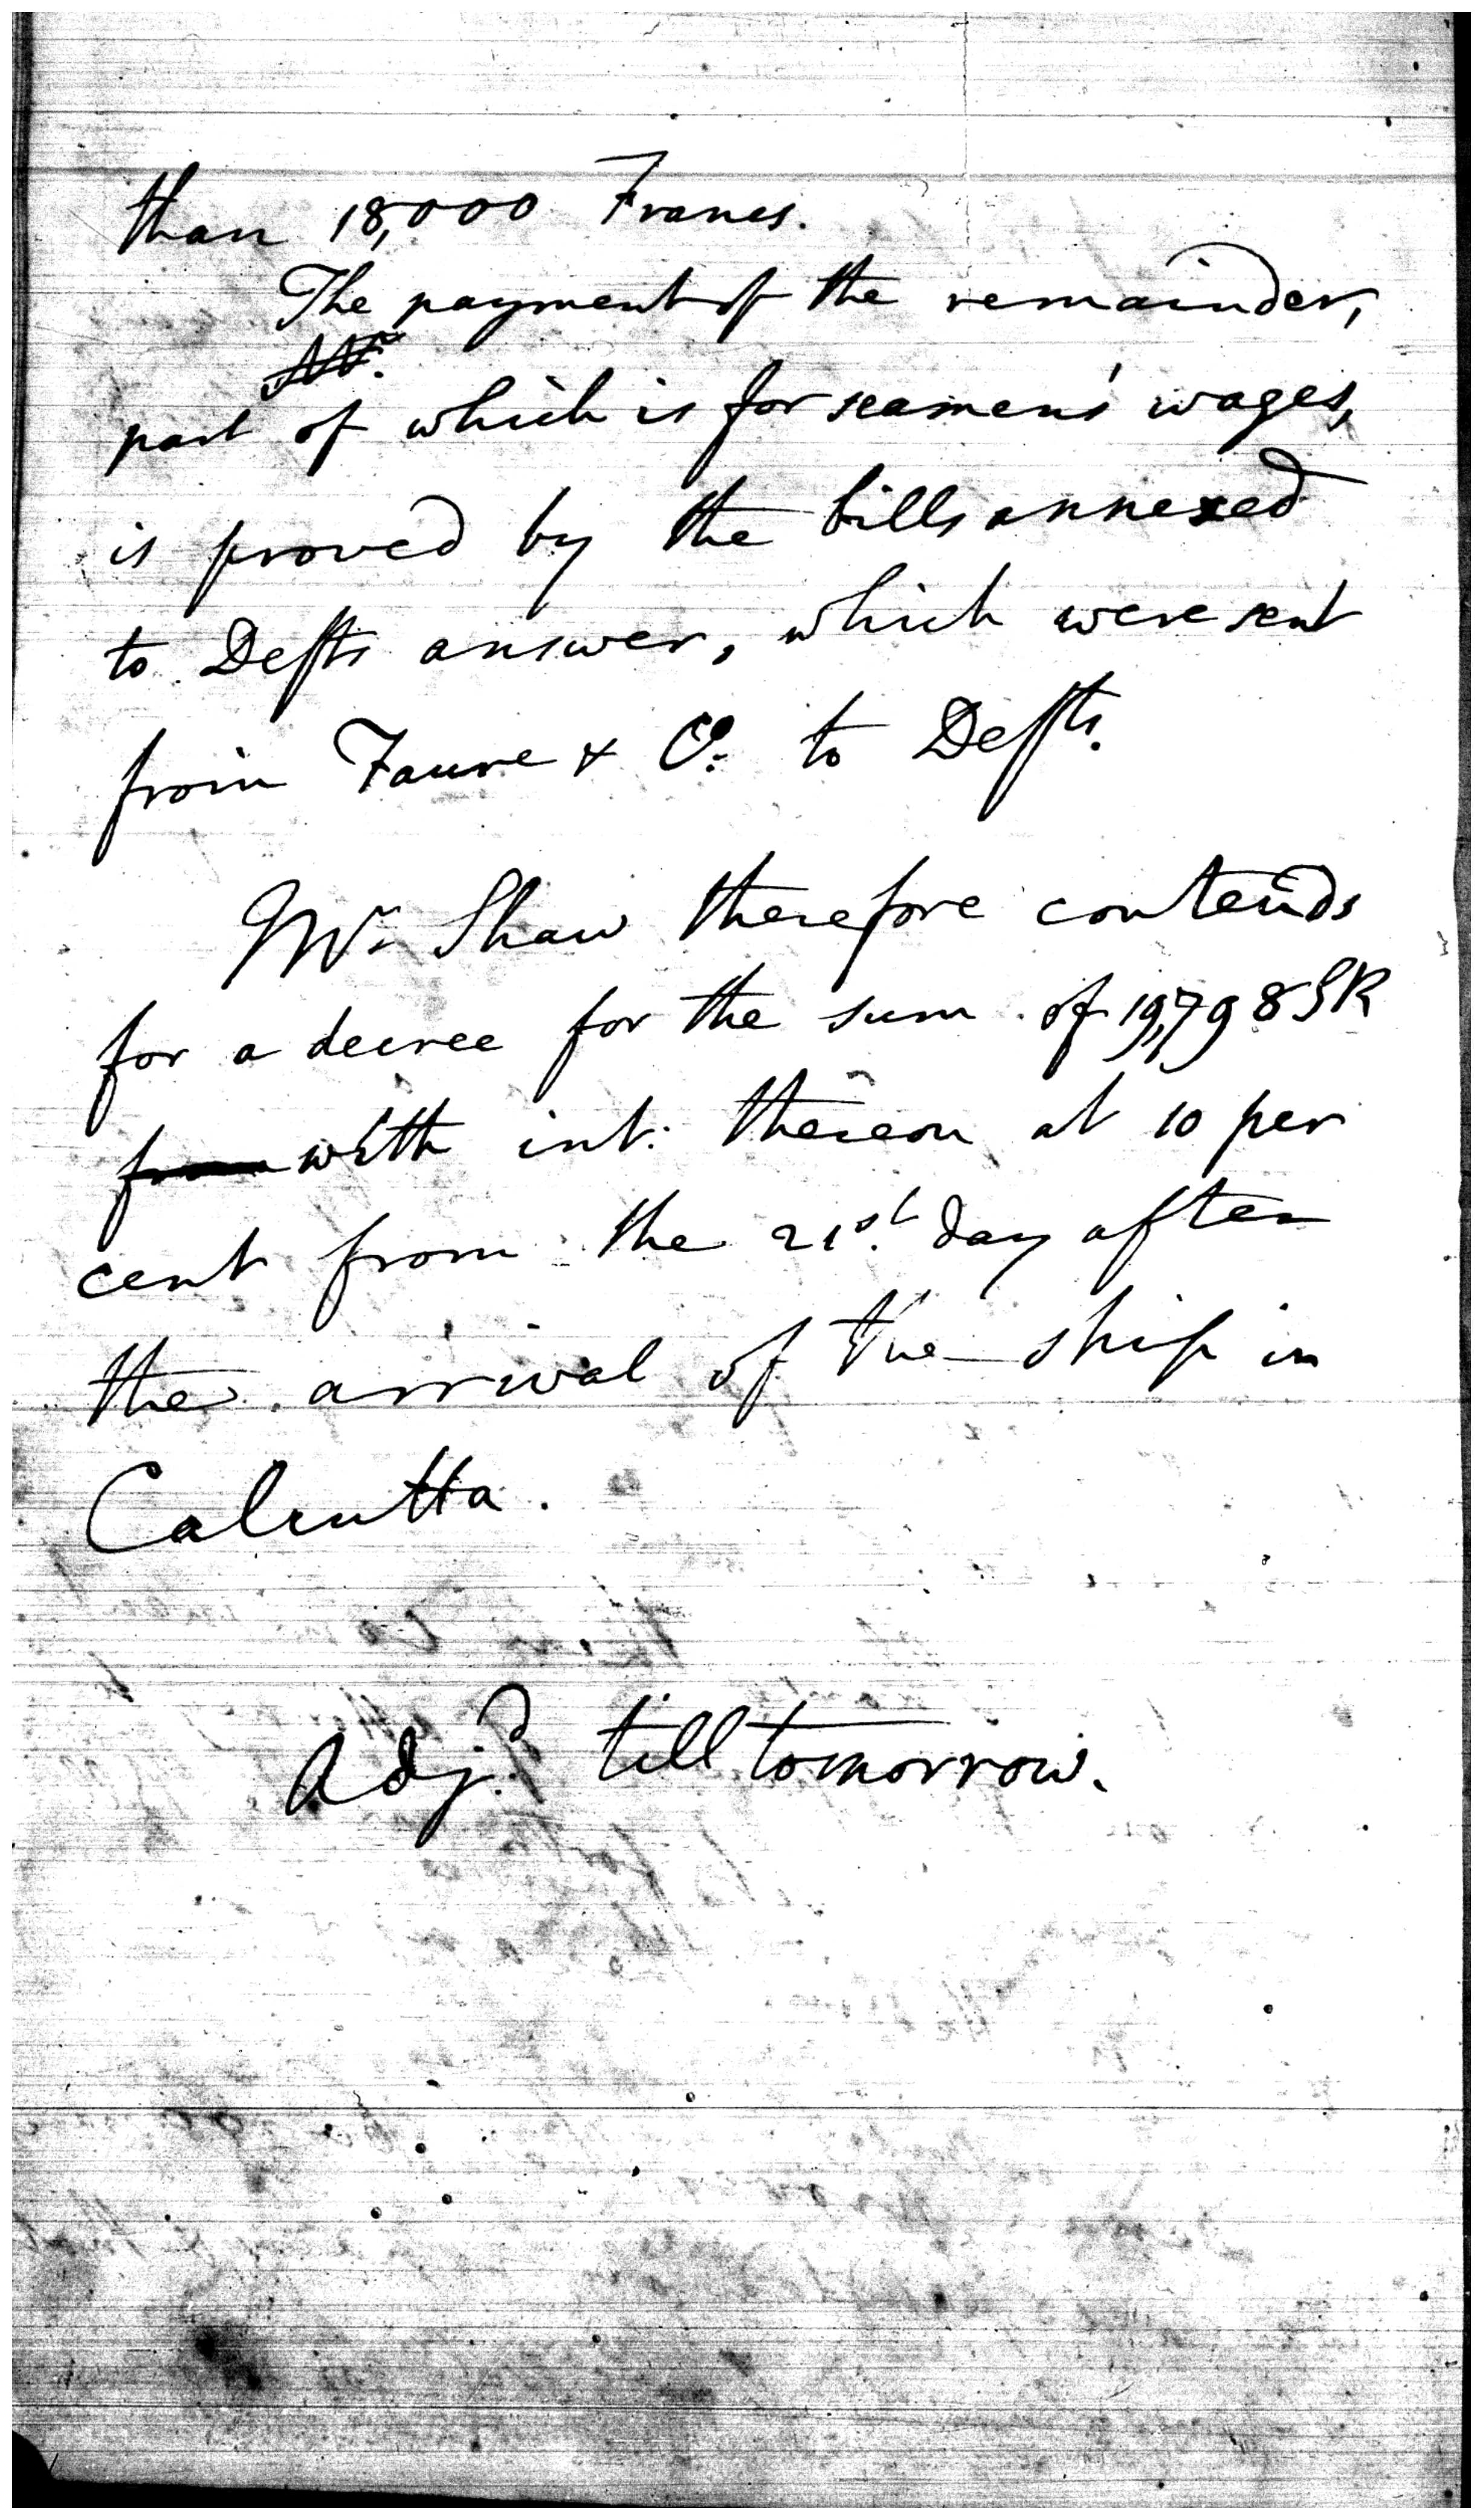 than 18,000 Francs.
The payment of the remainder,
Mr.
part of which is for seamens' wages,
is proved by the bills annexed
to Defts answer, which were sent
from Faure & Co. to Defts.
Mr. Shaw therefore contends
for a decree for the sum of 19,798 SR
from with int. thereon at 10 per
cent from the 21st. day after
the arrival of the ship in
Calcutta.
Adjd. till tomorrow.